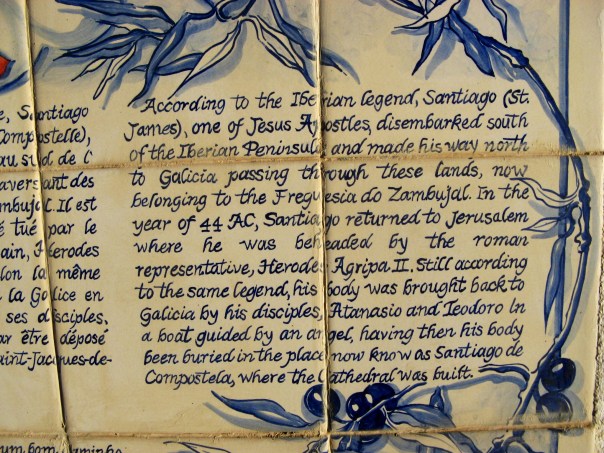 e, Santiago
Compostelle),
au sud de
aversant des
mbujal. Il est
é tué par le
ain, Herodes
lon la même
la Galice en
ses disciples,
ar être déposé
aint-Jacques-de-
According to the Iberian legend, Santiago (St.
James), one of Jesus Apostles, disembarked south
of the Iberian Peninsula and made his way north
to Galicia passing through these lands, now
belonging to the Freguesia do Zambujal. In the
year of 44 AC, Santiago returned to Jerusalem
where he was beheaded by the roman
representative, Herodes Agripa II. Still according
to the same legend, his body was brought back to
Galicia by his disciples, Atanasio and Teodoro In
a boat guided by an angel, having then his body
been buried in the place now know as Santiago de
Compostela, where the Cathedral was built.
um bom Caminho